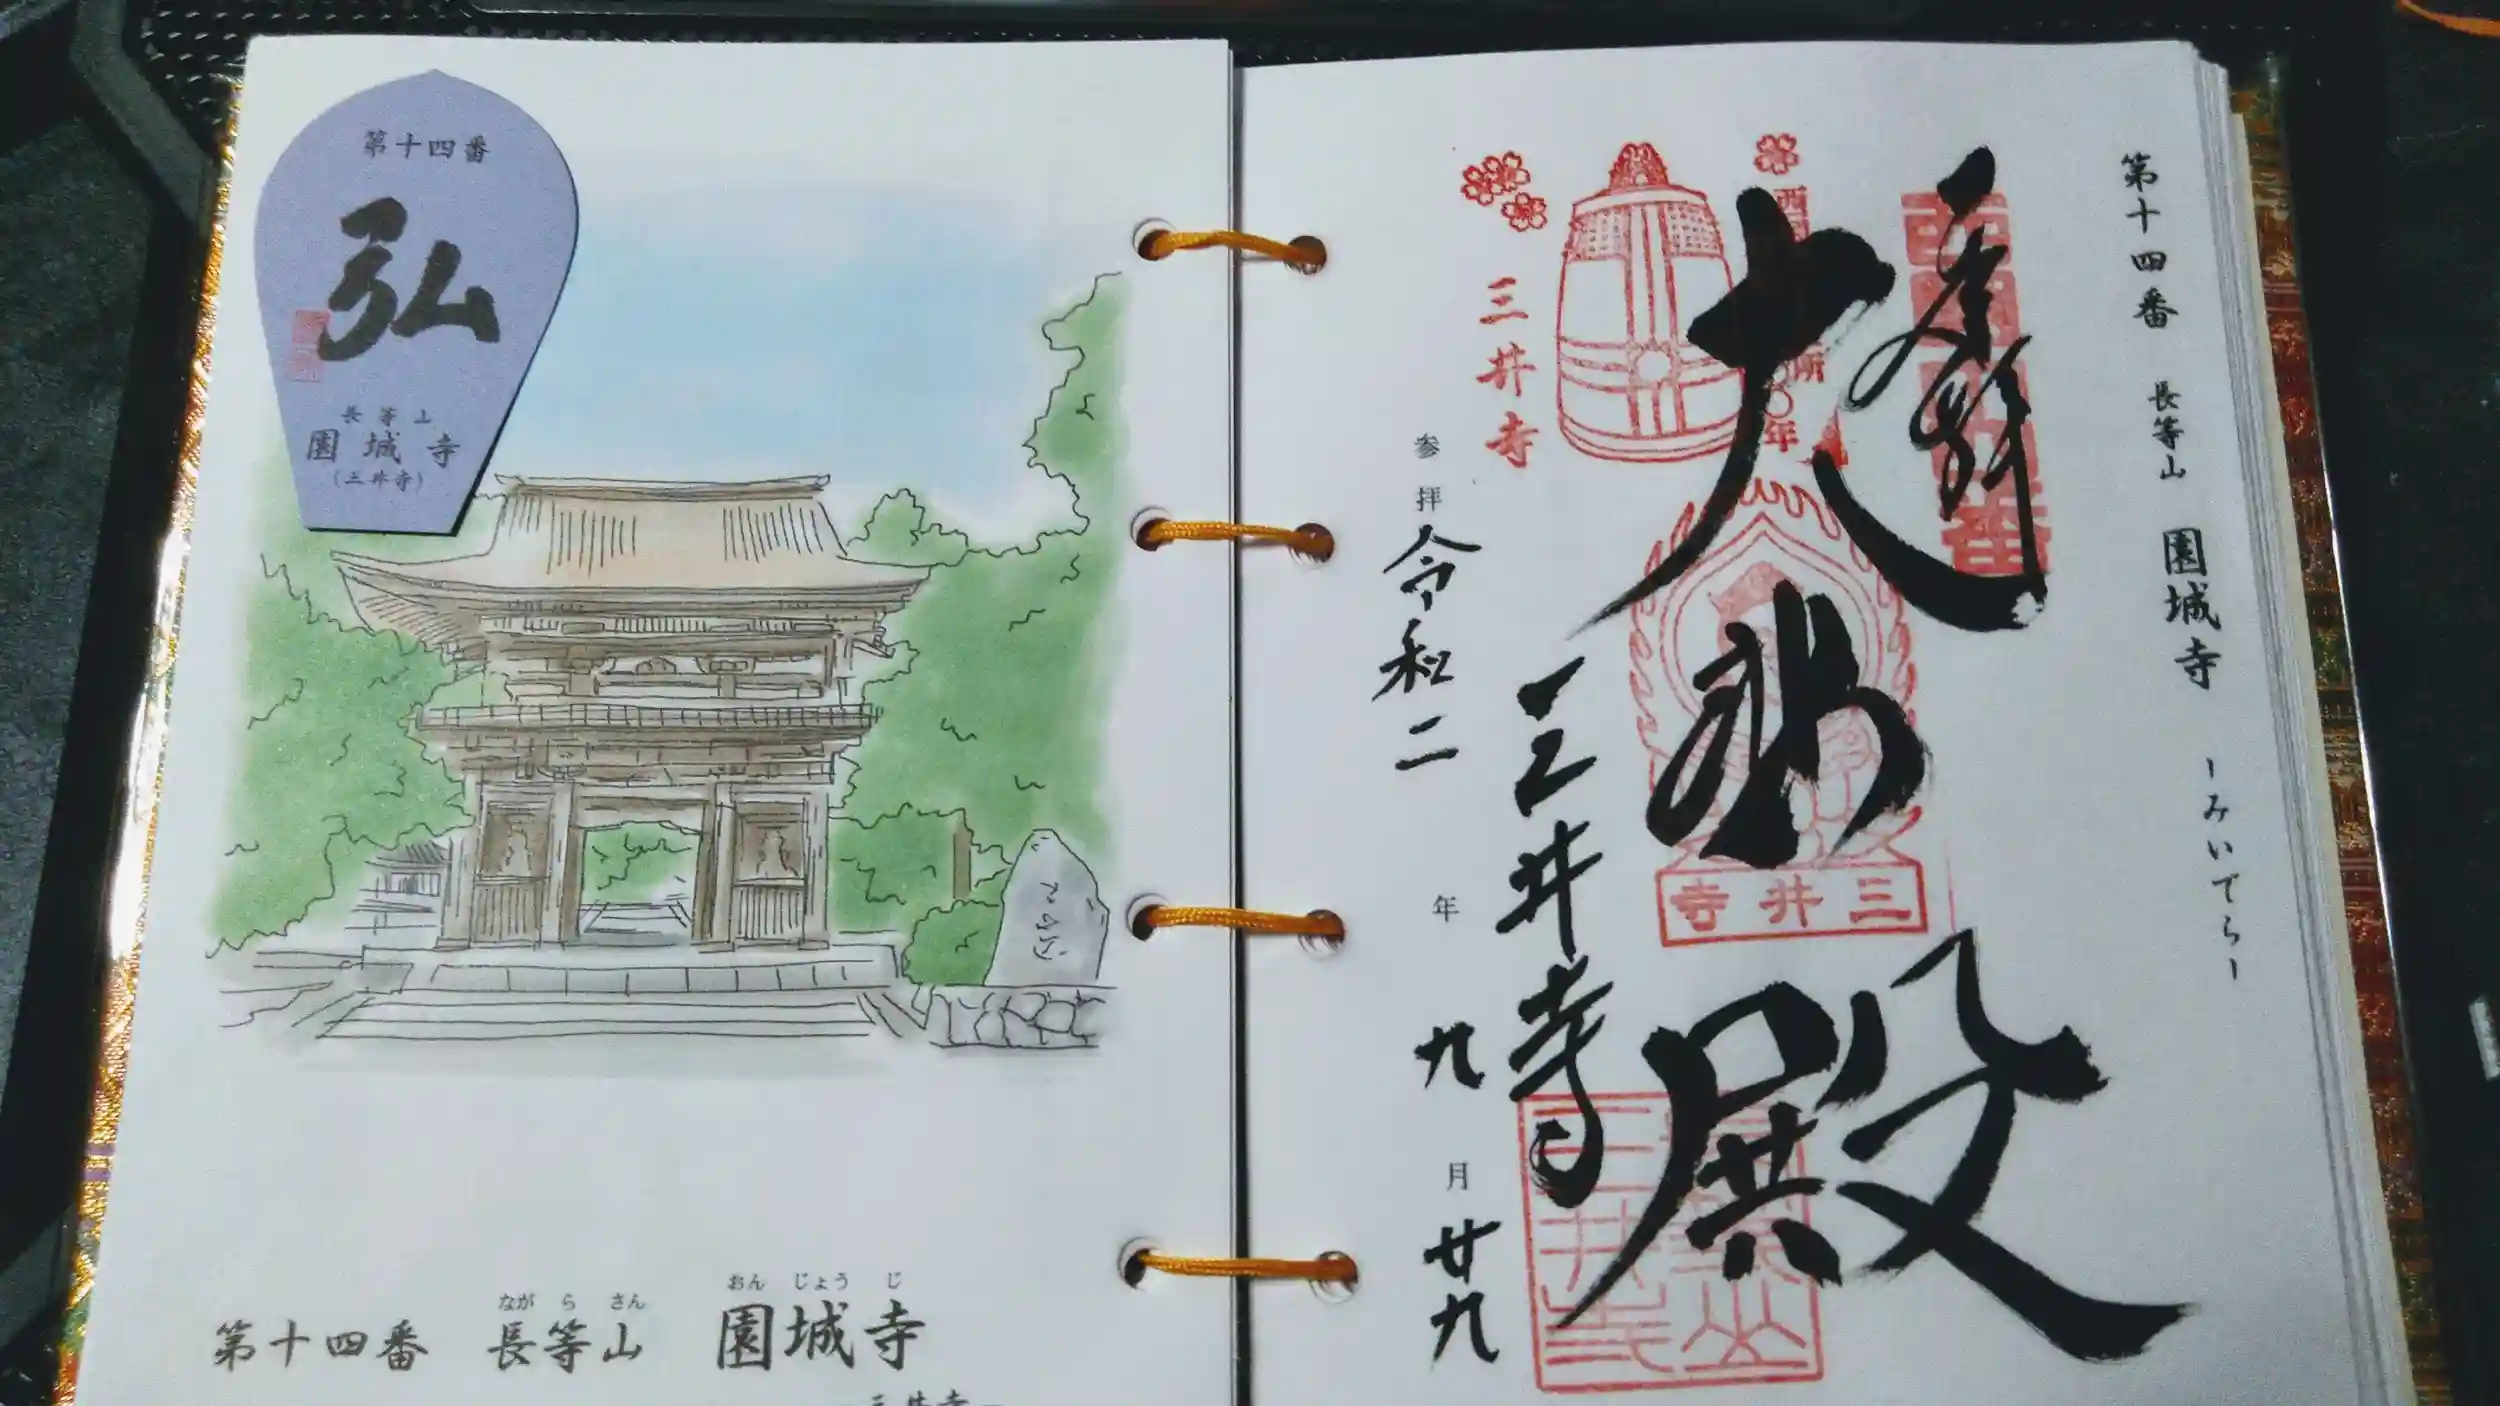 第十四番
弘
長等山
園城寺
(三井寺)
おん じょう じ
ながら さん
第十四番 長等山 園城寺
三井寺
第十四番 長等山 園城寺 -みいでら-
奉拝
大悲殿
三井寺
三井寺
三井寺
参拝 令和二年九月廿九